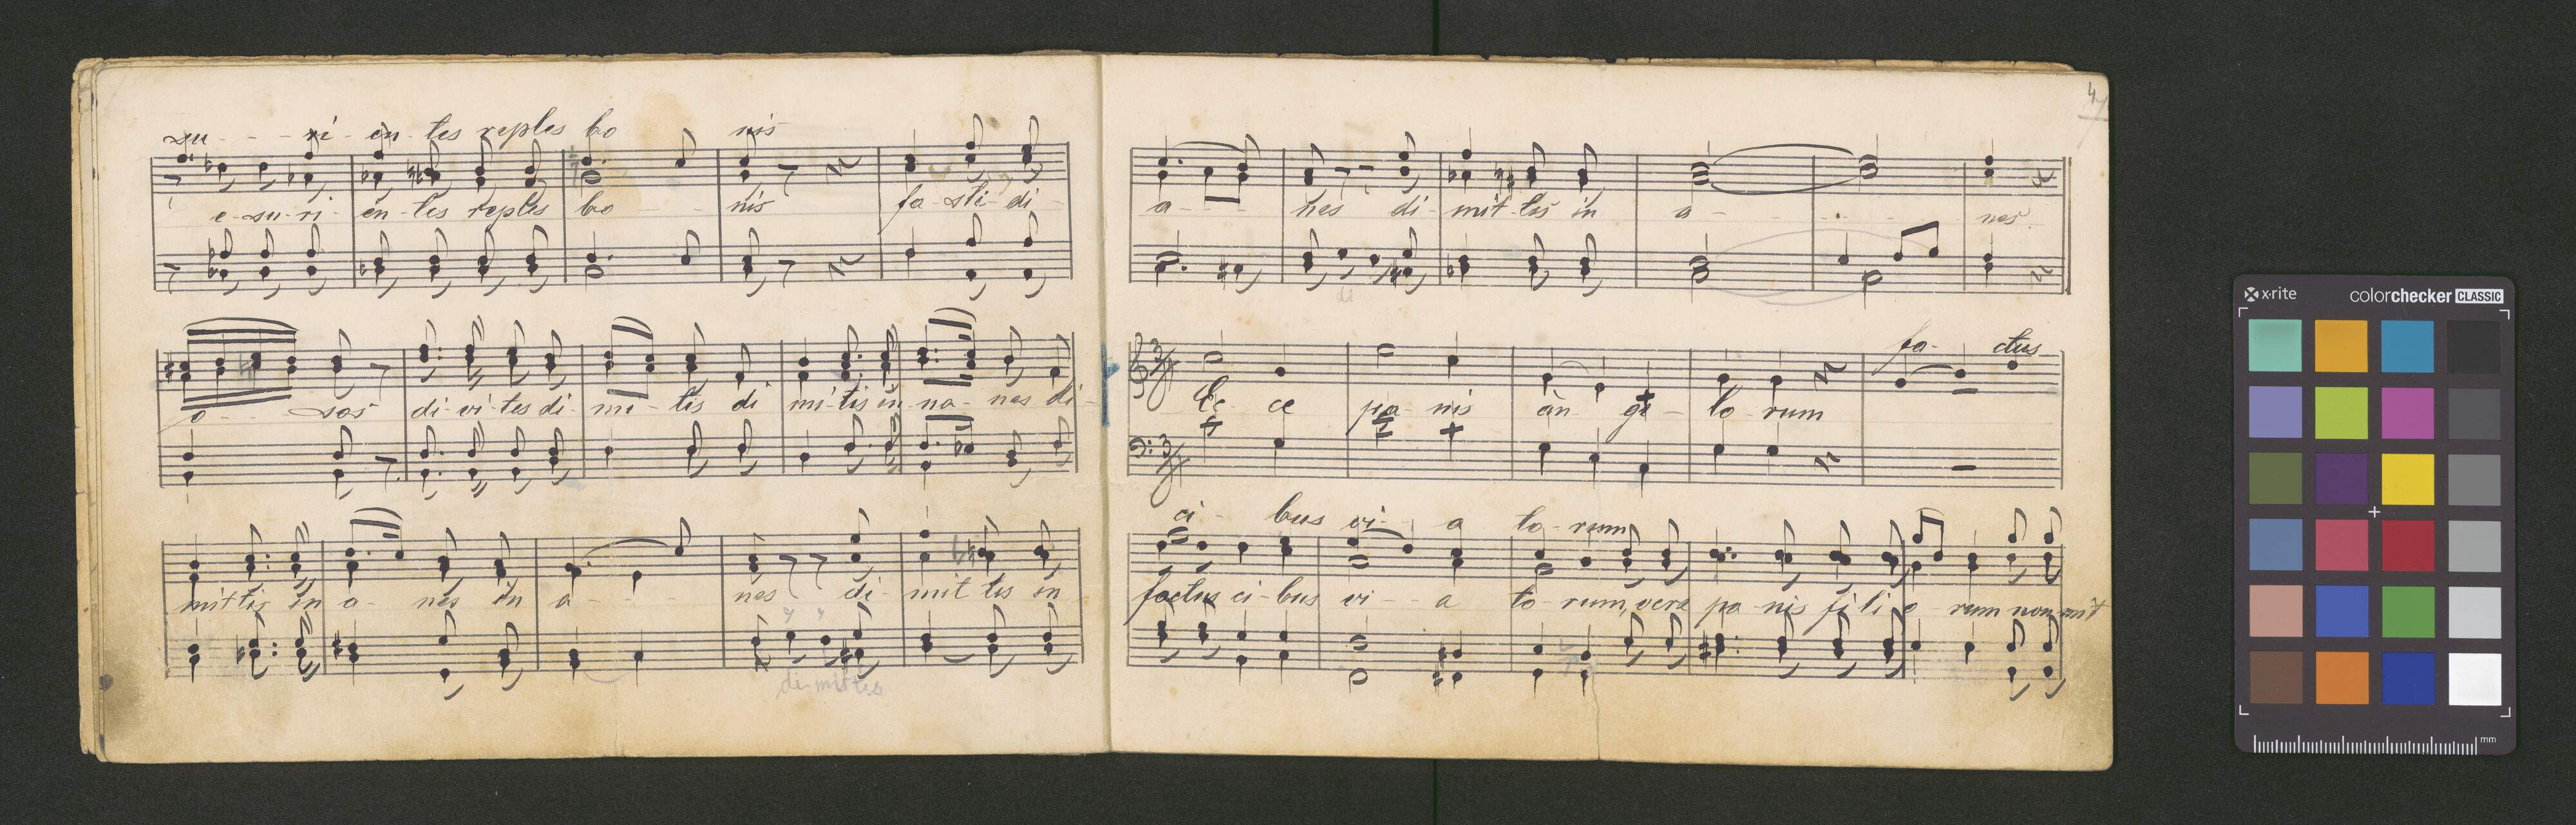 su - - - ri - en - tes reples bo nis
e - su - ri - en - tes reples bo nis fa - sti - di -
o - - sos di - vi - tes di - mi - tis di mi - tis in na - nes di -
mittis in a - nes in a - - nes di - mit tis in
di - mittis
4
a - - - nes di - mit - tis in a - - - - nes.
di
fa - ctus
Ec - ce pa - nis an ge - lo - rum
ci - bus vi - a to - rum
factus ci - bus vi - a to - rum, vere pa - nis fi li o - rum non mit
x-rite colorchecker CLASSIC
mm